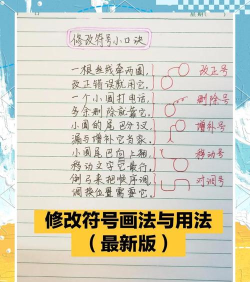 修改符号小口诀
一根曲线牵两圆,
改正错误就用它,
改正号
一个小圆打电话,
多余删除就靠它,
删除号
小圆的尾巴分叉,
漏写增补它当家,
增补号
小圆尾巴向上翻,
移动文字它最行,
移动号
倒弓来把顺序调,
调换位置需要它,
对调号
修改符号画法与用法
(最新版)